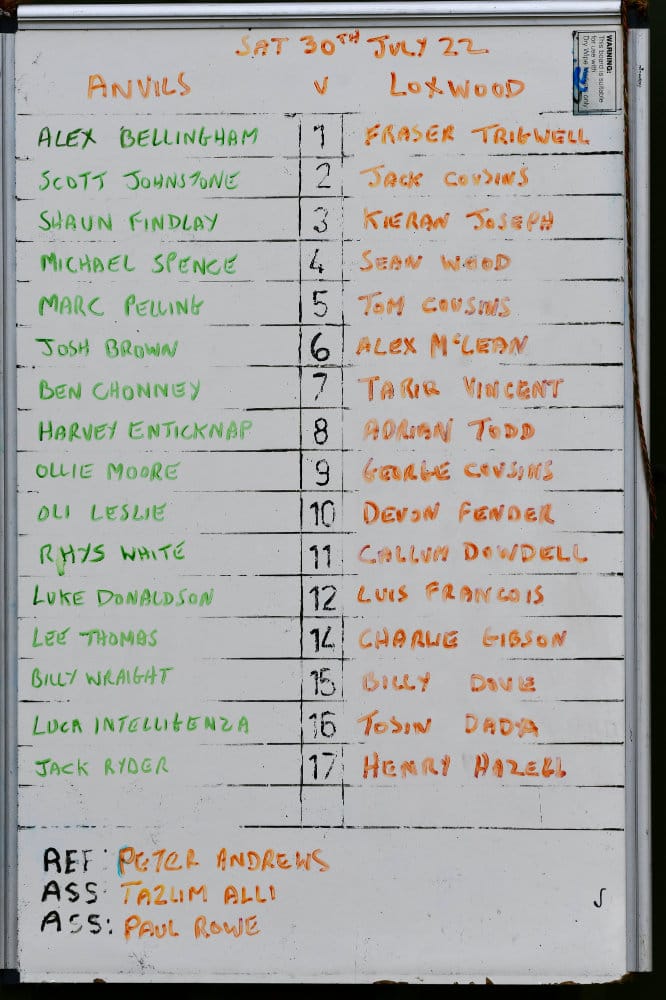 SAT 30TH JULY 22
WARNING:
This board is suitable
for use with
Dry Wipe only
ANVILS V LOXWOOD
ALEX BELLINGHAM 1 FRASER TRIGWELL
SCOTT JOHNSTONE 2 JACK COUSINS
SHAUN FINDLAY 3 KIERAN JOSEPH
MICHAEL SPENCE 4 SEAN WOOD
MARC PELLING 5 TOM COUSINS
JOSH BROWN 6 ALEX McLEAN
BEN CHONNEY 7 TARIQ VINCENT
HARVEY ENTICKNAP 8 ADRIAN TODD
OLLIE MOORE 9 GEORGE COUSINS
OLI LESLIE 10 DEVON FENDER
RHYS WHITE 11 CALLUM DOWDELL
LUKE DONALDSON 12 LUIS FRANCOIS
LEE THOMAS 14 CHARLIE GIBSON
BILLY WRAIGHT 15 BILLY DOVE
LUCA INTELLIGENZA 16 TOSIN DADA
JACK RYDER 17 HENRY HAZELL
REF: PETER ANDREWS
ASS: TAZLIM ALLI
ASS: PAUL ROWE